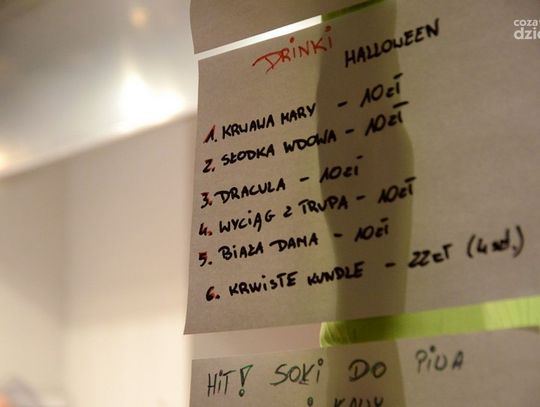 cozadzień
DRINKI HALLOWEEN
1. KRWAWA MARY - 10zł
2. SŁODKA WDOWA - 10zł
3. DRACULA - 10zł
4. WYCIĄG Z TRUPA - 10zł
5. BIAŁA DAMA - 10zł
6. KRWISTE KUNDLE - 22zł (4szt.)
HIT! SOKI DO PIWA
i KAWY